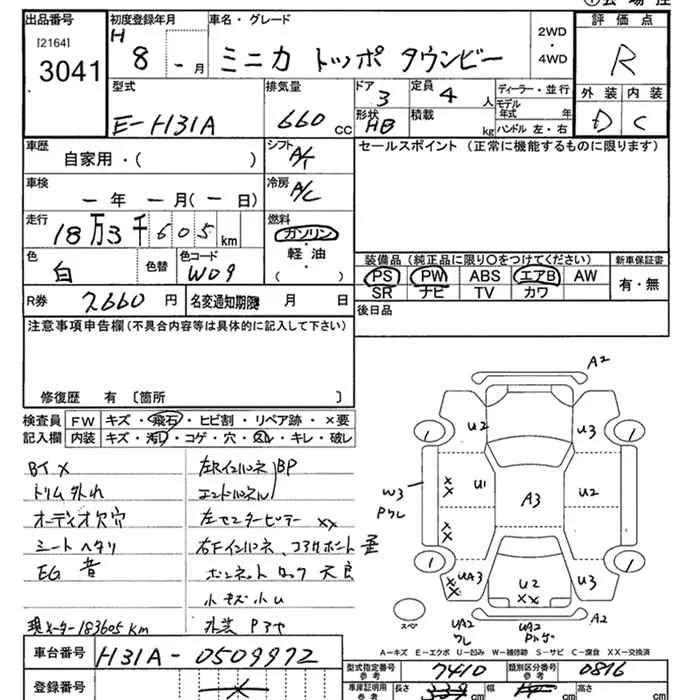 出品番号 初度登録年月 車名・グレード 評価点
[2164] H
3041 8 - 月 ミニカ トッポ タウンビー 2WD・4WD R
型式 排気量 ドア 定員 ディーラー・並行 外装 内装
E-H31A 660 CC 3 4人 モデル年式 年 D C
形状 HB 積載 kg ハンドル 左・右
車歴 シフト セールスポイント (正常に機能するものに限ります)
自家用・( ) A/T
車検 冷房
-年 -月(-日) A/C
走行 燃料
18万3千605km ガソリン
色 色替 色コード 軽油 装備品 (純正品に限り○をつけてください) 新車保証書
白 W09 ( ) PS PW ABS エアB AW 有・無
SR ナビ TV カワ
R券 2660円 名変通知期限 月 日 後日品
注意事項申告欄(不具合内容等は具体的に記入して下さい)
修復歴 有 〔箇所 〕
検査員 FW キズ・飛石・ヒビ割・リペア跡・×要
記入欄 内装 キズ・汚れ・コゲ・穴・スレ・キレ・破レ
BTX 左Rインパネ BP
トリム外れ エンドパネル
オーディオ欠穴 左センターピラー XX
シートヘタリ 右Fインパネ、コアサポート 歪
EG音 ボンネットロック不良
小キズ小U
現メーター183605Km 外装Pアセ
A2
1 U2 U3 1
W3 Pクレ XX U1 A3 U2
XX
1 UA3 XX U2 XX U3 1
スペ UA2 ワレ UA2 A2
A-キズ E-エクボ U-凹み W-補修跡 S-サビ C-腐食 XX-交換済
車台番号 H31A-0509972
登録番号
型式指定番号 参考 7410 類別区分番号 参考 0816
車庫証明用 参考 長さ 幅 高さ